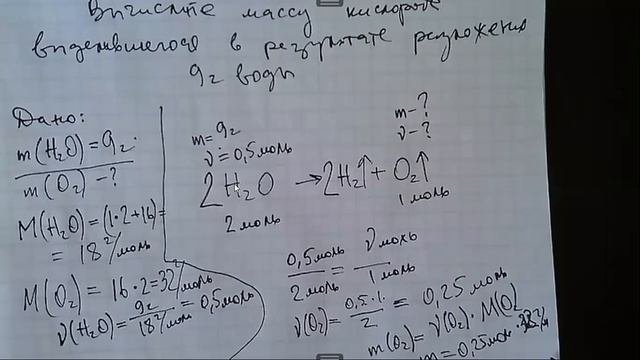 Вычислите массу кислорода
выделившегося в результате разложения
9г воды
Дано:
m(H₂O)=9г.
m(O₂) – ?
M(H₂O)=(1·2+16)=
= 18 г/моль
M(O₂) = 16·2=32 г/моль
ν(H₂O)= 9г / 18 г/моль = 0,5моль
m=9г
ν=0,5моль
m–?
ν–?
2H₂O → 2H₂↑+ O₂↑
2моль
1моль
0,5моль / 2моль = ν моль / 1моль
ν(O₂)= 0,5·1 / 2 = 0,25моль
m(O₂)=ν(O₂)·M(O₂)
m=0,25моль·32г/м